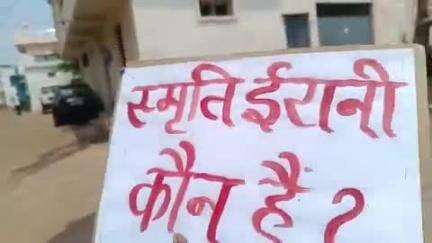 स्मृति ईरानी
कौन हैं ?